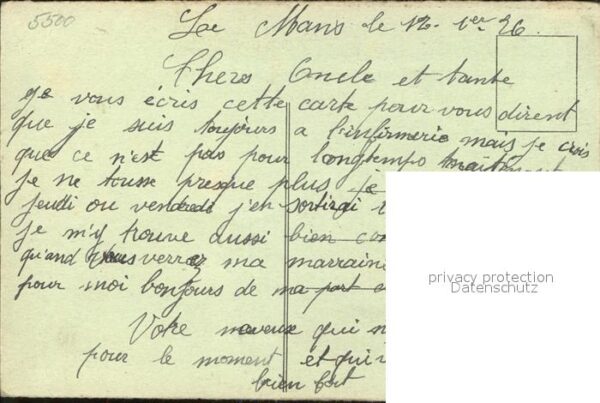 5500
Le Mans le 12. 1er 26.
Chers Oncle et tante
Je vous écris cette carte pour vous dirent
que je suis toujours a l'infirmerie mais je crois
que ce n'est pas pour longtemps
je ne tousse presque plus je
jeudi ou vendredi j'en sortirai
je m'y trouve aussi bien
quand vous verrez ma marraine
pour moi bonjours de ma part
privacy protection
Datenschutz
Votre neveux qui
pour le moment et qui
bien fort